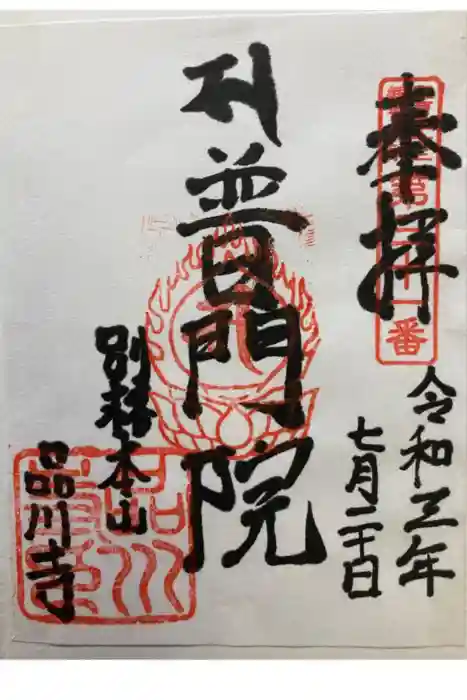 奉拝
第三十一番
令和三年
七月二十日
普門院
別格本山
品川寺